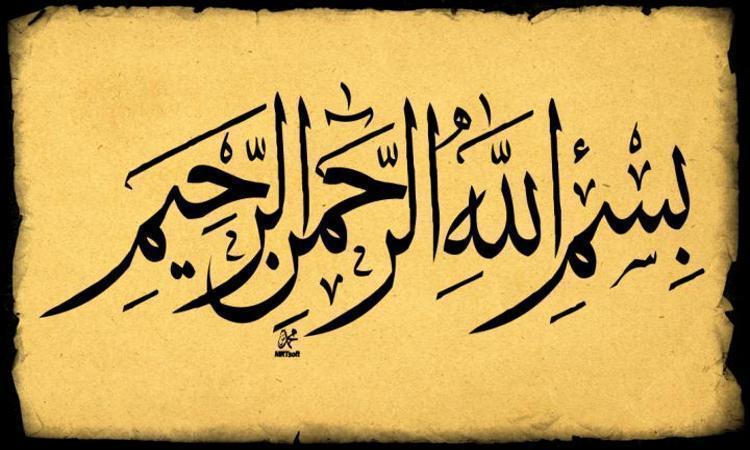 بِسْمِ اللَّهِ الرَّحْمٰنِ الرَّحِيمِ
MRTsoft